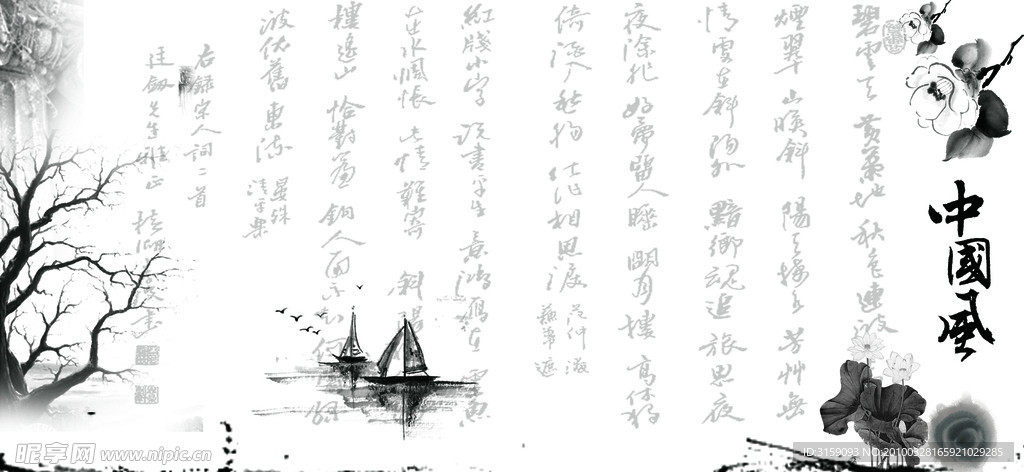 碧雲天黃葉地秋色連波
煙翠山映斜陽天接水芳艸無
情更在斜陽外黯鄉魂追旅思夜
夜除非好夢留人睡明月樓高休獨
倚酒入愁腸化作相思淚
范仲淹
蘇幕遮
紅牋小字說盡平生意鴻雁在雲魚
在水惆悵此情難寄斜陽
樓遙山恰對簾鉤人面不知何處綠
波依舊東流
晏殊
清平樂
右錄宋人詞二首
中國風
昵享网 www.nipic.cn
www.nipic.cn
ID:3159093 NO:20100328165921029285